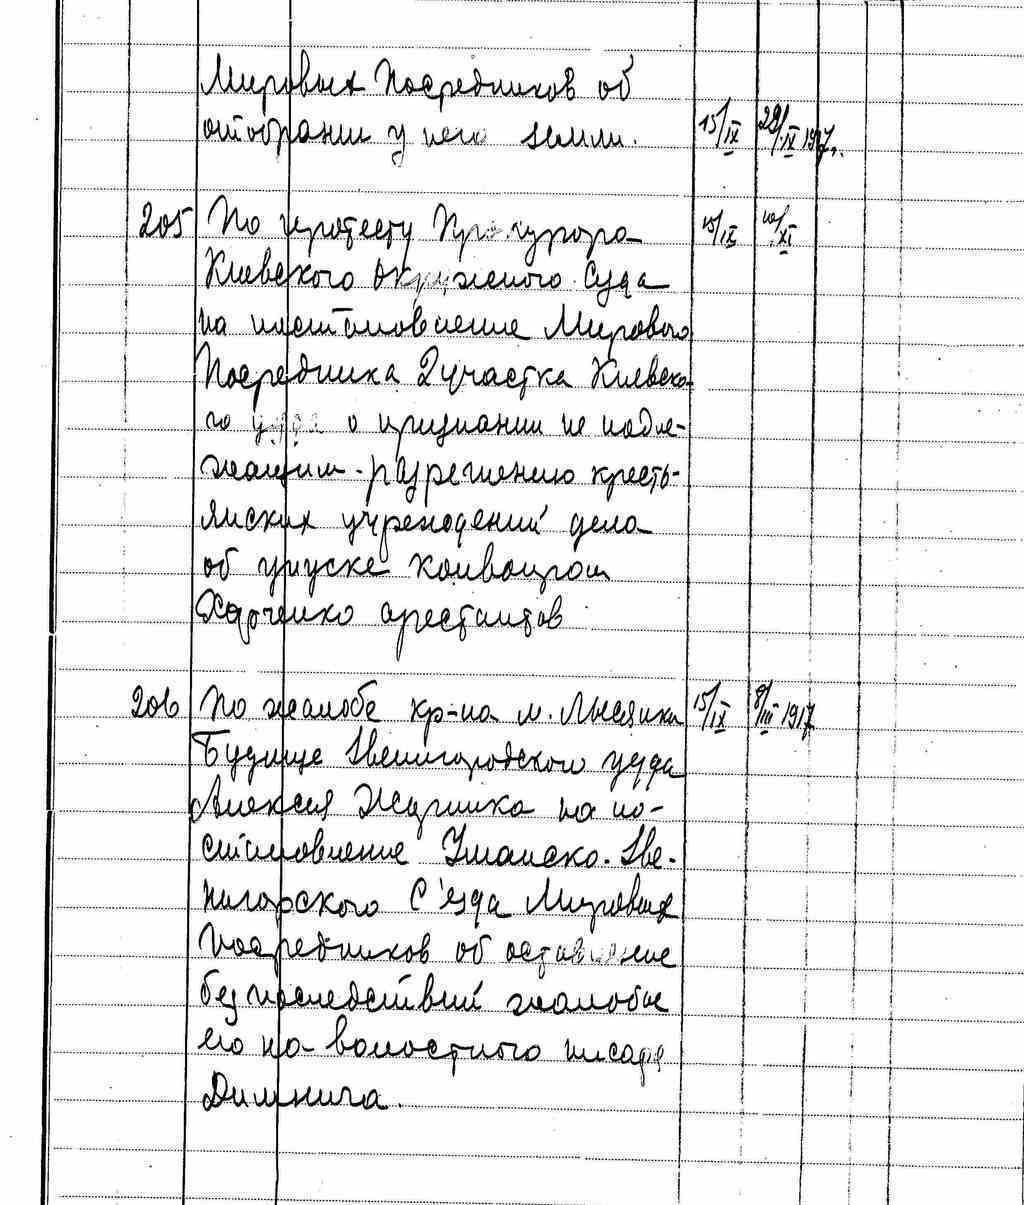 Мировых Посредников об
отобрании у него земли. 15/IX 29/IX 1917.
205 По протесту Прокурора 15/IX 10/XI
Киевского Окружного Суда
на постановление Мирового
Посредника 2 участка Киевско-
го уезда о признании не подле-
жащим разрешению кресть-
янских учреждений дела
об упуске конвоиром
Харченко арестантов
206 По жалобе кр-на м. Лысянки 15/IX 8/III 1917
Будище Звенигородского уезда
Алексея на по-
становление Уманско-Зве-
нигорского С'езда Мировых
Посредников об оставление
без последствий жалобы
его на волостного писаря
Димнича.